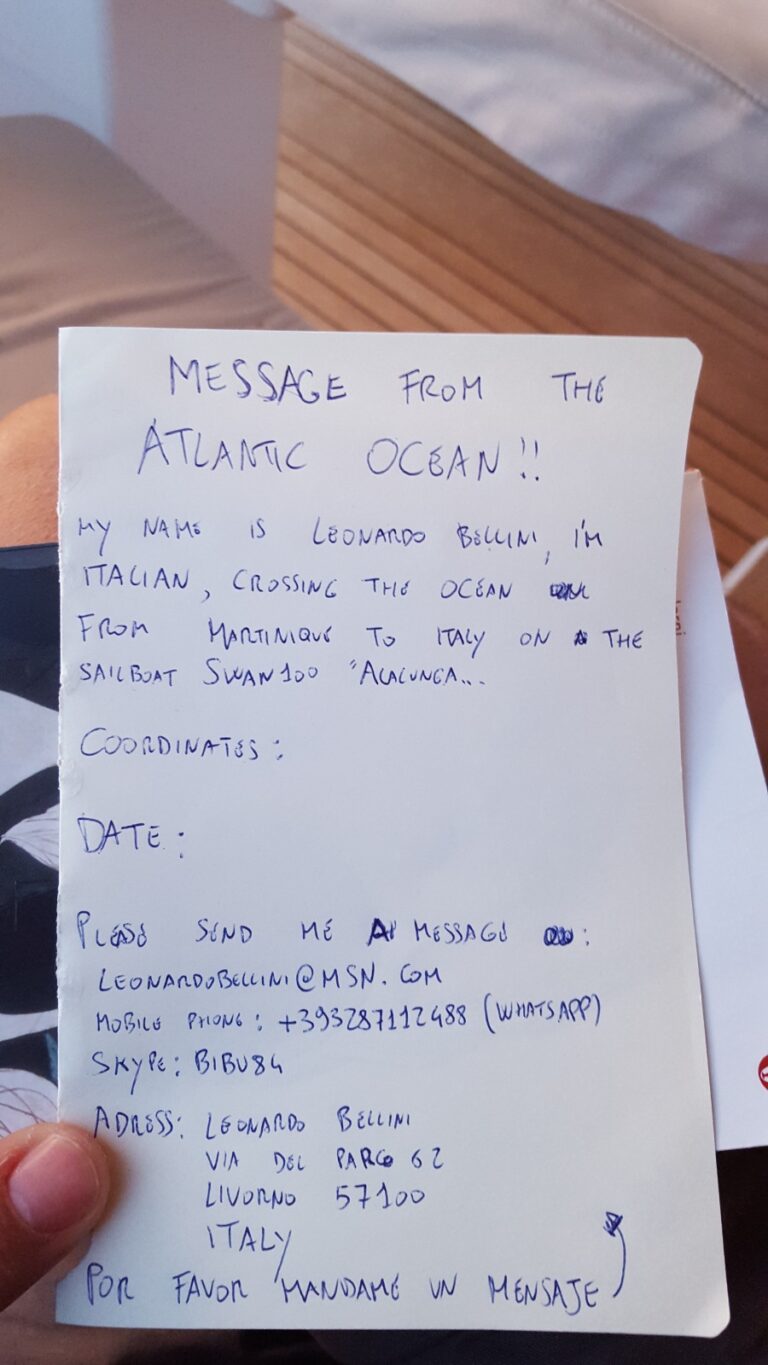 MESSAGE FROM THE
ATLANTIC OCEAN!!
MY NAME IS LEONARDO BELLINI, I'M
ITALIAN, CROSSING THE OCEAN
FROM MARTINIQUE TO ITALY ON THE
SAILBOAT SWAN100 "ALALUNGA...
COORDINATES:
DATE:
PLEASE SEND ME A MESSAGE :
LEONARDOBELLINI@MSN.COM
MOBILE PHONE: +393287112488 (WHATSAPP)
SKYPE: BIBU84
ADRESS: LEONARDO BELLINI
VIA DEL PARCO 62
LIVORNO 57100
ITALY
POR FAVOR MANDAME UN MENSAJE